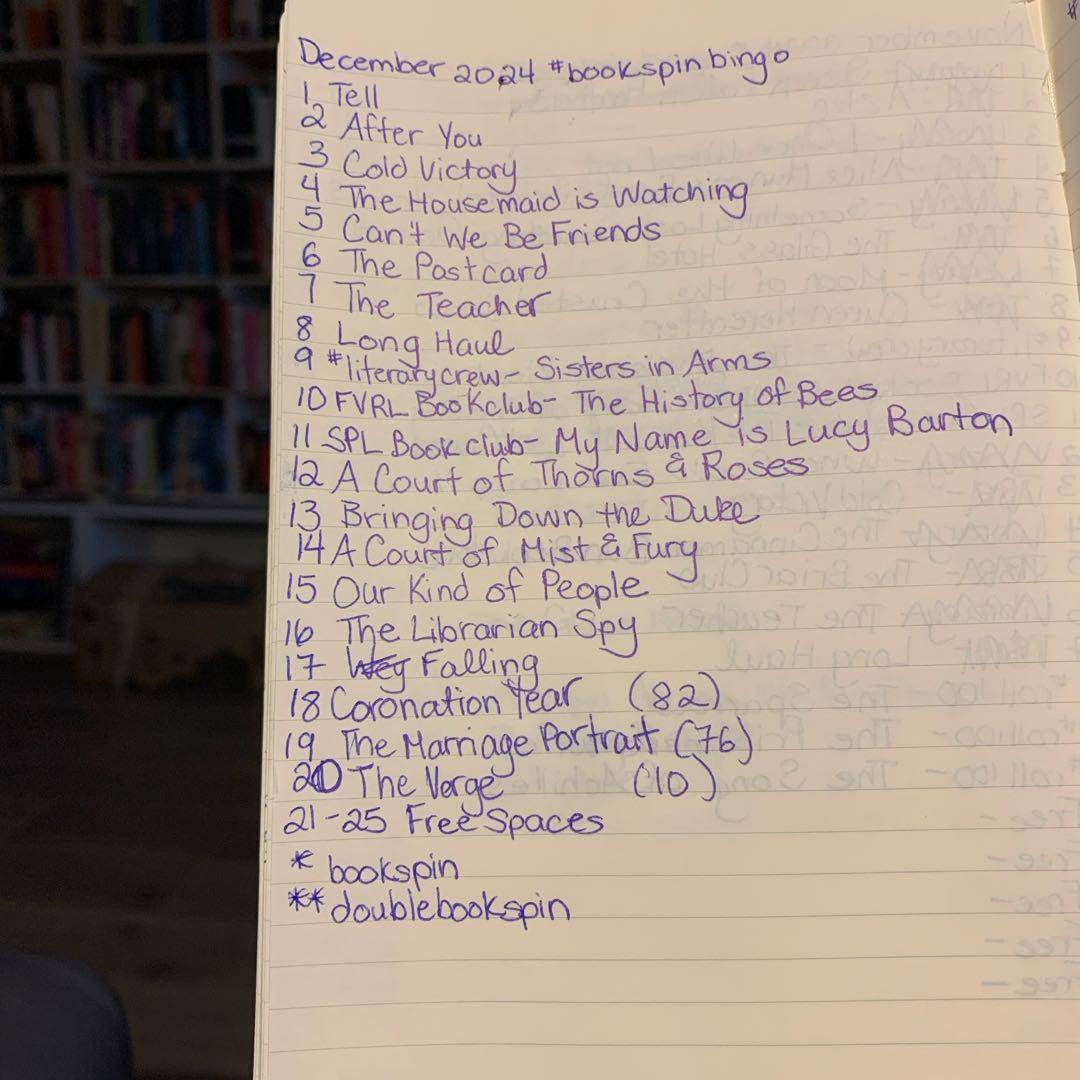 December 2024 #bookspinbingo
1 Tell
2 After You
3 Cold Victory
4 The Housemaid is Watching
5 Can't We Be Friends
6 The Postcard
7 The Teacher
8 Long Haul
9 #literarycrew- Sisters in Arms
10 FVRL Bookclub- The History of Bees
11 SPL Bookclub- My Name is Lucy Barton
12 A Court of Thorns & Roses
13 Bringing Down the Duke
14 A Court of Mist & Fury
15 Our Kind of People
16 The Librarian Spy
17 Falling
18 Coronation Year (82)
19 The Marriage Portrait (76)
20 The Verge (10)
21-25 Free Spaces
* bookspin
** doublebookspin